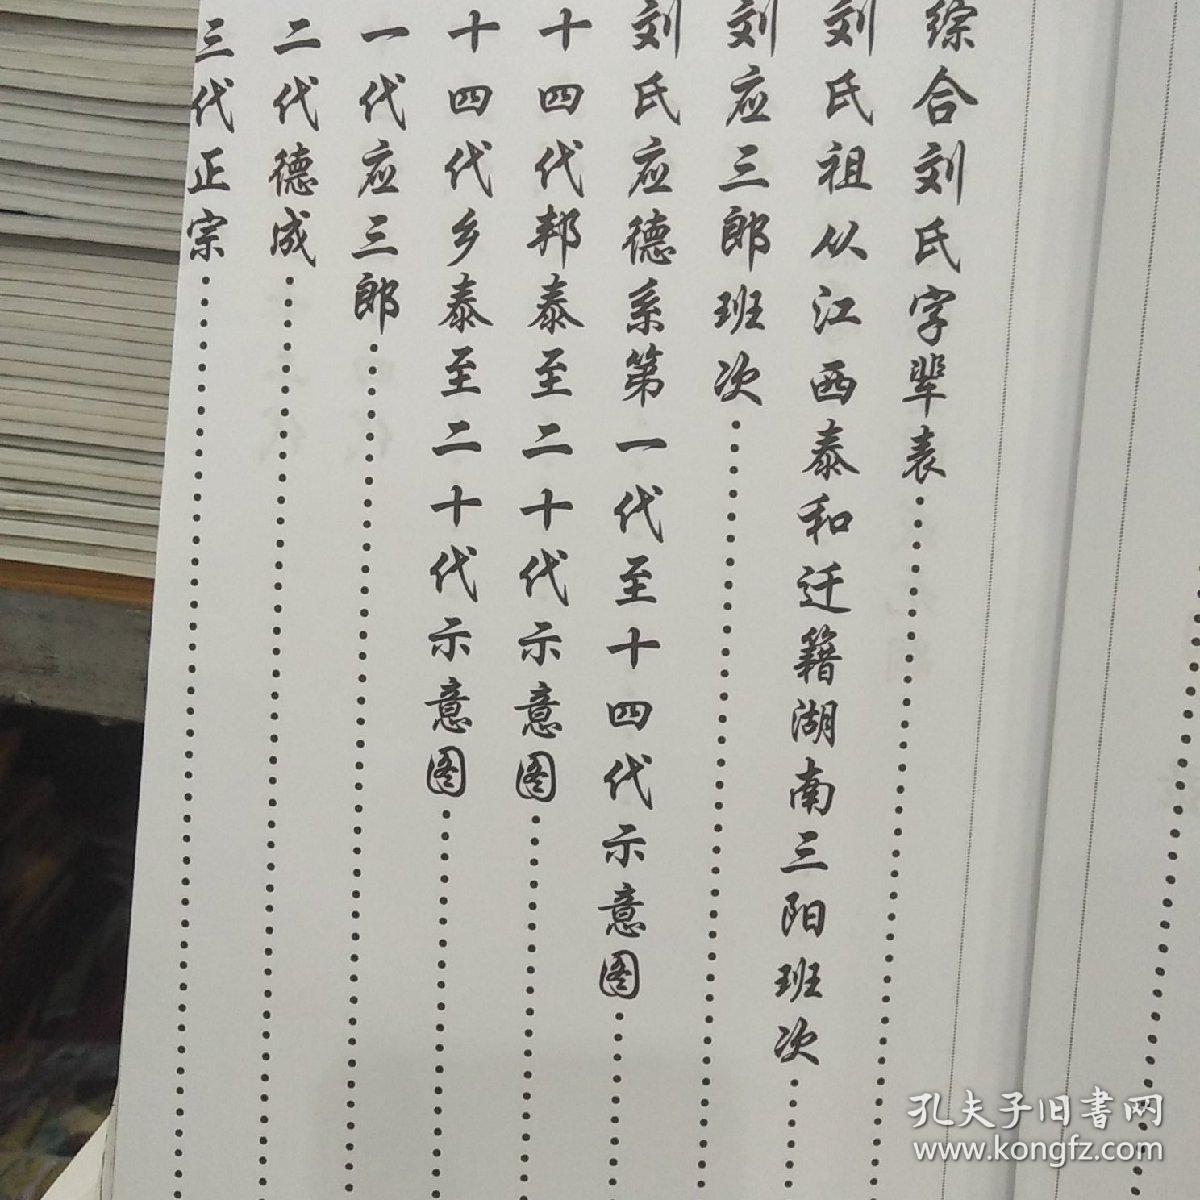 综合刘氏字辈表
刘氏祖从江西泰和迁籍湖南三阳班次
刘应三郎班次
刘氏应德系第一代至十四代示意图
十四代邦泰至二十代示意图
十四代乡泰至二十代示意图
一代应三郎
二代德成
三代正宗
孔夫子旧書网
www.kongfz.com